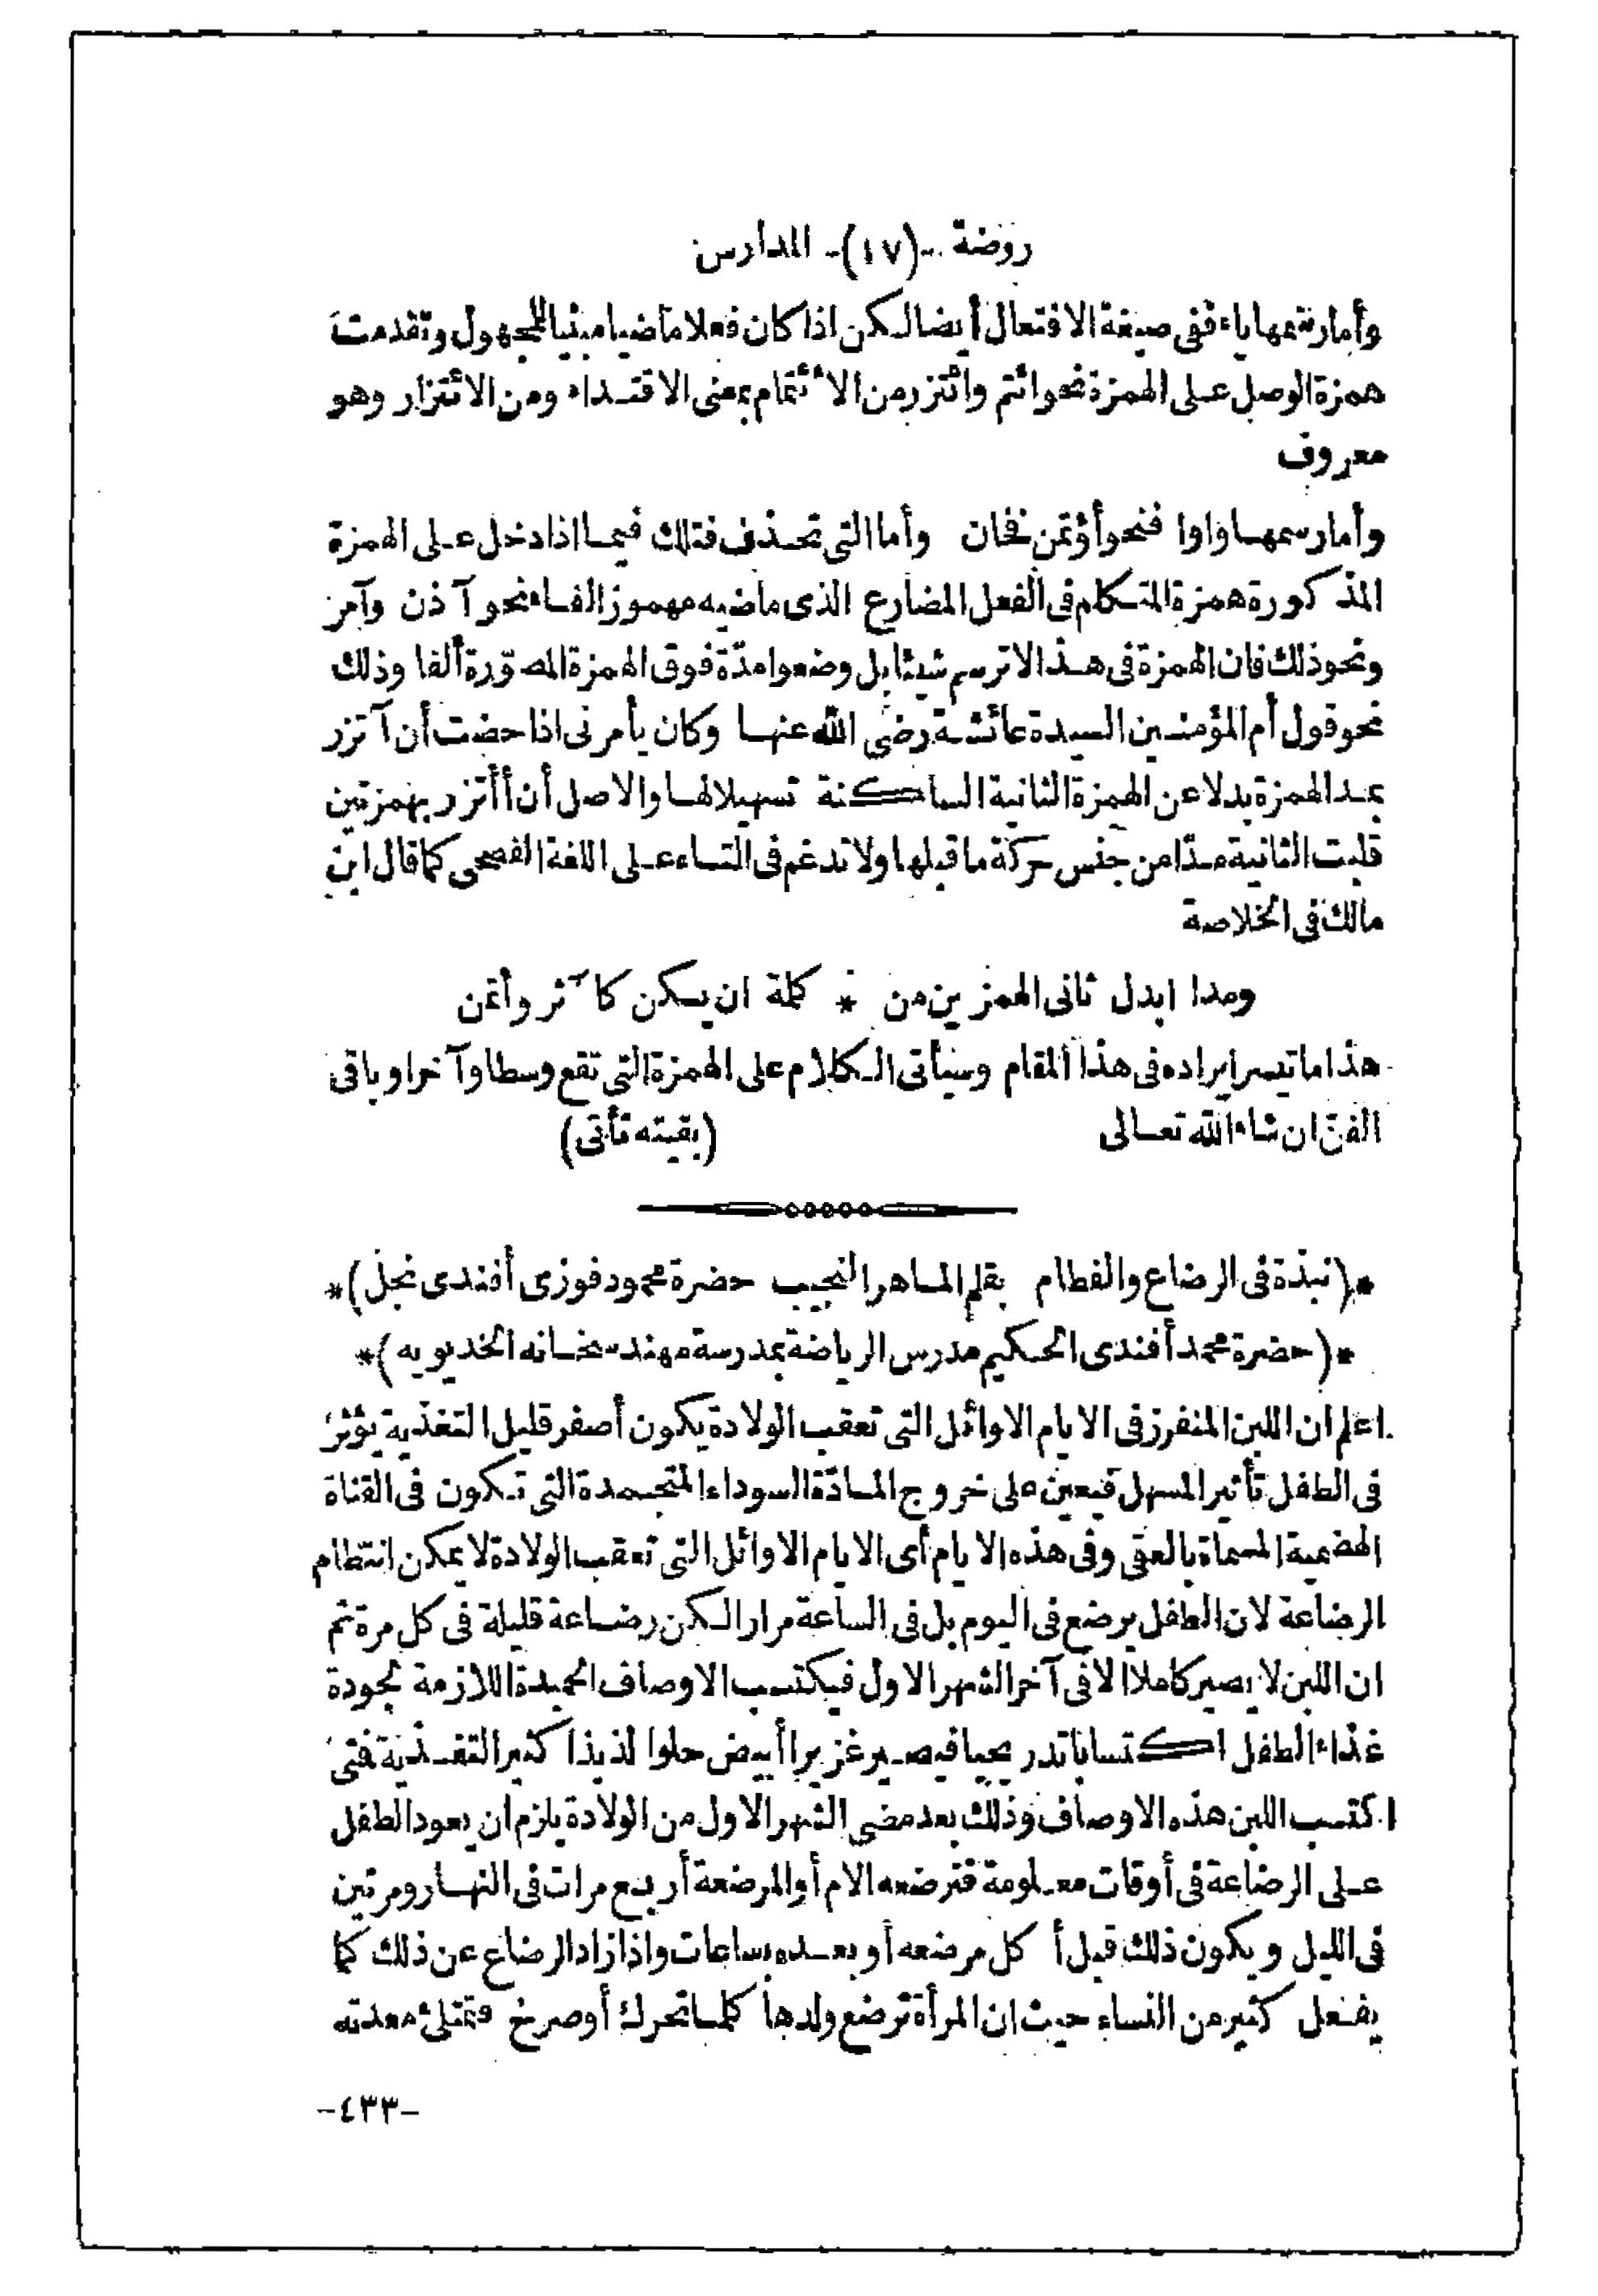 روضة -(١٧)- المدارس
وأما رسمها ياء ففى صيغة الافتعال أيضا لكن اذا كان فعلا ماضيا مبنيا للمجهول وتقدمت
همزة الوصل على الهمزة نحو ائتم وائتزر من الائتمام بمعنى الاقتداء ومن الائتزار وهو
معروف
وأما رسمها واوا فنحو أؤتمن فخان وأما التى تحذف فتلك فيما اذا دخل على الهمزة
المذكورة همزة المتكلم فى الفعل المضارع الذى ماضيه مهموز الفاء نحو آذن وآمر
ونحو ذلك فان الهمزة فى هذا لا ترسم شيئا بل وضعوا مدّة فوق الهمزة المصوّرة ألفا وذلك
نحو قول أم المؤمنين السيدة عائشة رضى الله عنها وكان يأمرنى اذا حضت أن آتزر
بمد الهمزة بدلا عن الهمزة الثانية الساكنة تسهيلا لها والاصل أن أأتزر بهمزتين
قلبت الثانية مدّا من جنس حركة ما قبلها ولا تدغم فى التاء على اللغة الفصحى كما قال ابن
مالك فى الخلاصة
ومدا ابدل ثانى الهمزين من * كلمة ان يسكن كآثر وأتمن
هذا ما تيسر ايراده فى هذا المقام وسيأتى الكلام على الهمزة التى تقع وسطا وآخرا وباقى
الفنّ ان شاء الله تعالى (بقيته تأتى)
*(نبذة فى الرضاع والفطام بقلم الماهر النجيب حضرة محمود فوزى أفندى نجل)*
*(حضرة محمد أفندى الحكيم مدرس الرياضة بمدرسة مهندسخانه الخديويه)*
اعلم ان اللبن المنفرز فى الايام الاوائل التى تعقب الولادة يكون أصفر قليل التغذية يؤثر
فى الطفل تأثير المسهل فيعين على خروج المادّة السوداء المتجمدة التى تكون فى القناة
الهضمية المسماة بالعقى وفى هذه الايام أى الايام الاوائل التى تعقب الولادة لا يمكن انتظام
الرضاعة لان الطفل يرضع فى اليوم بل فى الساعة مرارا لكن رضاعة قليلة فى كل مرة ثم
ان اللبن لا يصير كاملا الا فى آخر الشهر الاول فيكتسب الاوصاف الحميدة اللازمة لجودة
غذاء الطفل اكتسابا تدريجيا فيصير غزيرا أبيض حلوا لذيذا كثير التغذية فتى
اكتسب اللبن هذه الاوصاف وذلك بعد مضى الشهر الاول من الولادة يلزم ان يعود الطفل
على الرضاعة فى أوقات معلومة فترضعه الام أو المرضعة أربع مرات فى النهار ومرتين
فى الليل ويكون ذلك قبل أكل مرضعه أو بعده بساعات واذا زاد الرضاع عن ذلك كما
يفعل كثير من النساء حيث ان المرأة ترضع ولدها كلما تحرك أو صرخ فتمتلئ معدته
-٤٣٣-